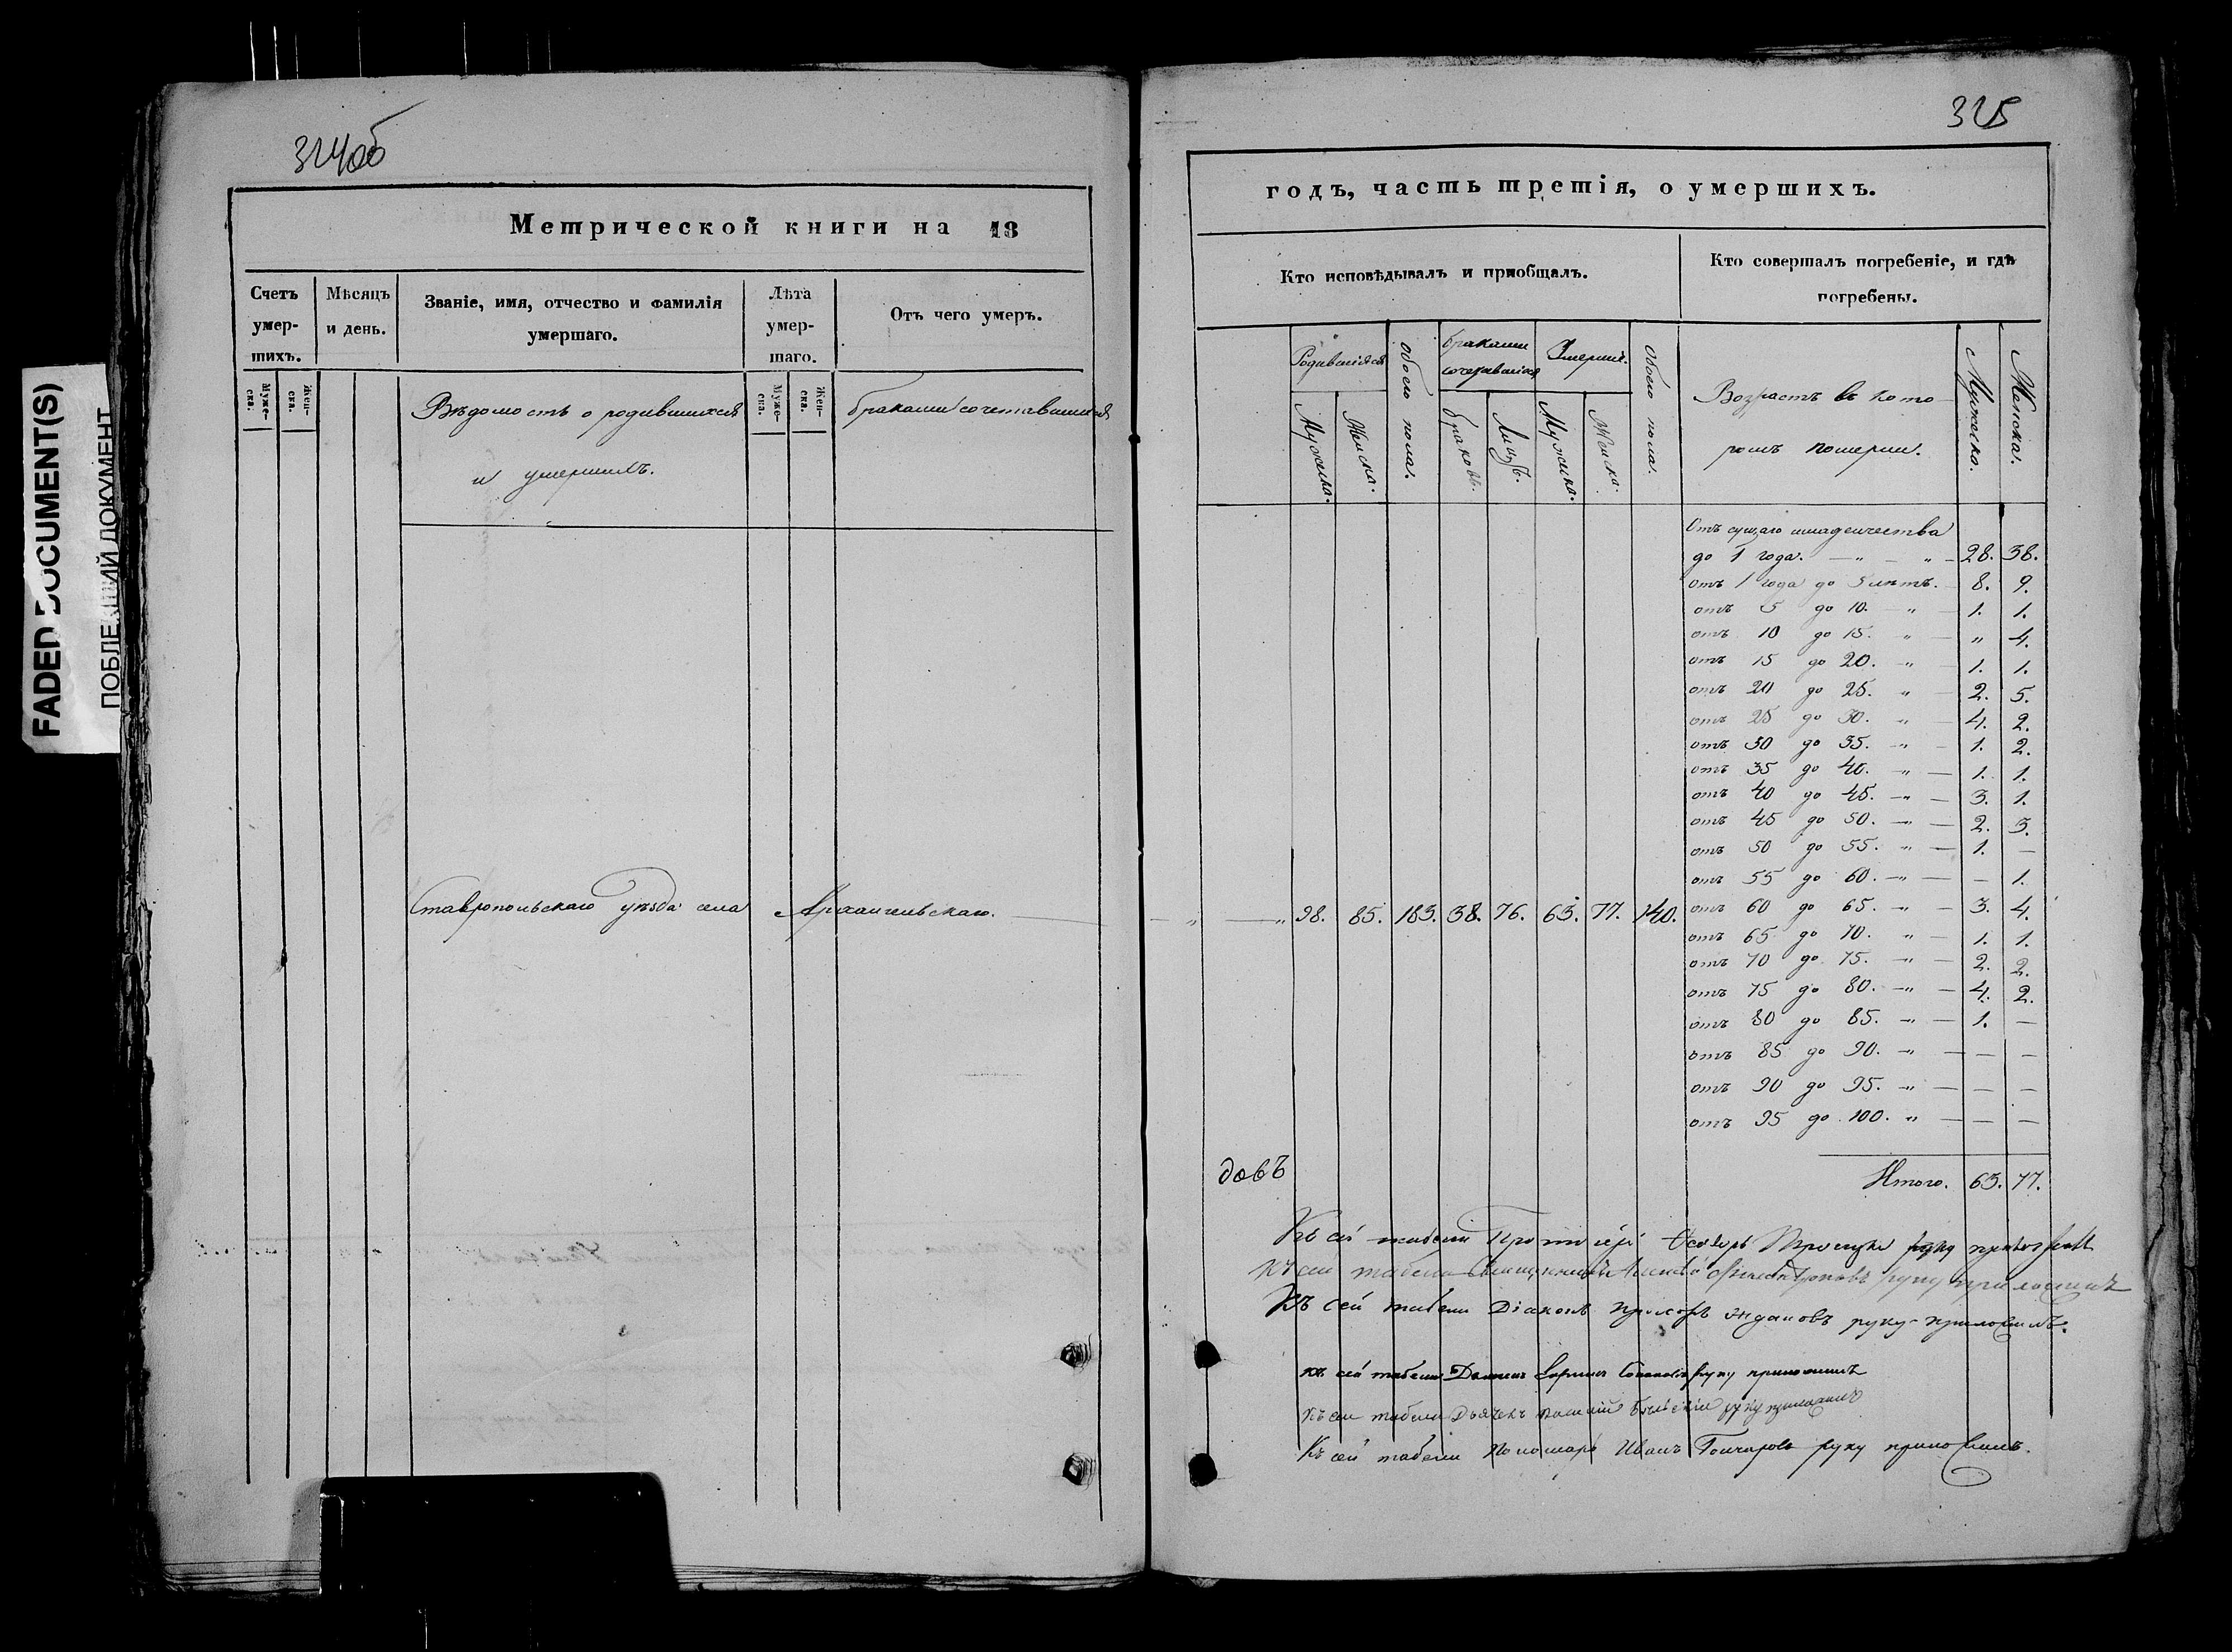 FADED DOCUMENT(S)
ПОБЛЕКШИЙ ДОКУМЕНТ
324об
Метрической книги на 18
Счетъ умер-шихъ.
Мѣсяцъ и день.
Званіе, имя, отчество и фамилія
умершаго.
Лѣта умер-шаго.
Отъ чего умеръ.
Муже-ска.
Жен-ска.
Муже-ска.
Жен-ска.
Вѣдомость о родившихся бракомъ сочетавшихся
и умершихъ.
Ставропольскаго уѣзда села Архангельскаго.
325
годъ, часть третія, о умершихъ.
Кто исповѣдывалъ и пріобщалъ.
Кто совершалъ погребеніе, и гдѣ
погребены.
Родившихся
обоего пола.
браками
сочетавшихся
Умерши.
обоего пола.
Мужеска.
Женска.
браковъ.
Лицъ.
Мужеска.
Женска.
Возрастъ въ кото-
ромъ померли.
Мужеска.
Женска.
Отъ сущаго младенчества
до 1 года. — „ — „ — 28. 38.
отъ 1 года до 5 лѣтъ. 8. 9.
отъ 5 до 10. „ 1. 1.
отъ 10 до 15. „ „ 4.
отъ 15 до 20. „ 1. 1.
отъ 20 до 25. „ 2. 5.
отъ 25 до 30. „ 4. 2.
отъ 30 до 35. „ 1. 2.
отъ 35 до 40. „ 1. 1.
отъ 40 до 45. „ 3. 1.
отъ 45 до 50. „ 2. 3.
отъ 50 до 55. „ 1. —
отъ 55 до 60. „ — 1.
98. 85. 183. 38. 76. 63. 77. 140.
отъ 60 до 65. „ 3. 4.
отъ 65 до 70. „ 1. 1.
отъ 70 до 75. „ 2. 2.
отъ 75 до 80. „ 4. 2.
отъ 80 до 85. „ 1. —
отъ 85 до 90. „ — —
отъ 90 до 95. „ — —
отъ 95 до 100. „ — —
довъ
Итого. 63. 77.
Къ сей табели руку
Къ сей табели Священникъ руку приложилъ
Къ сей табели Діаконъ Ждановъ руку приложилъ.
къ сей табели руку приложилъ
Къ сей табели Дьячекъ руку приложилъ
Къ сей табели Пономарь Иванъ Гончаровъ руку приложилъ.